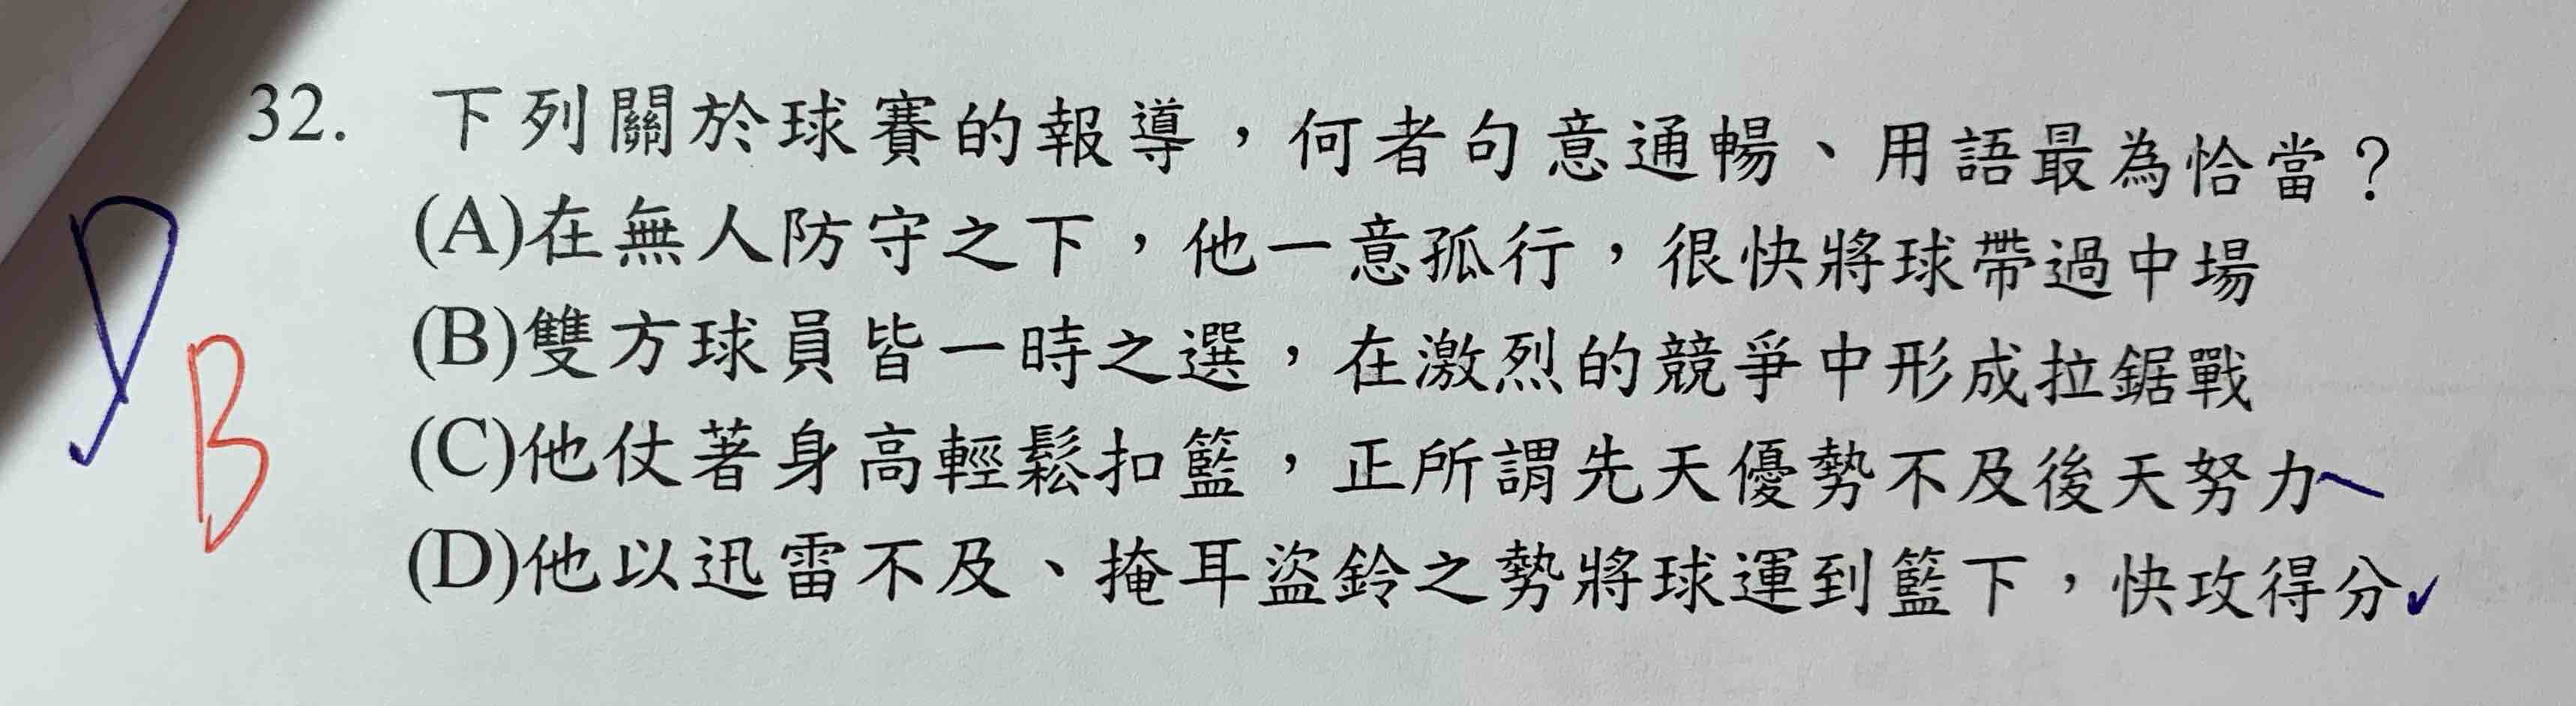 32. 下列關於球賽的報導，何者句意通暢、用語最為恰當？
(A)在無人防守之下，他一意孤行，很快將球帶過中場
(B)雙方球員皆一時之選，在激烈的競爭中形成拉鋸戰
(C)他仗著身高輕鬆扣籃，正所謂先天優勢不及後天努力
(D)他以迅雷不及、掩耳盜鈴之勢將球運到籃下，快攻得分
B